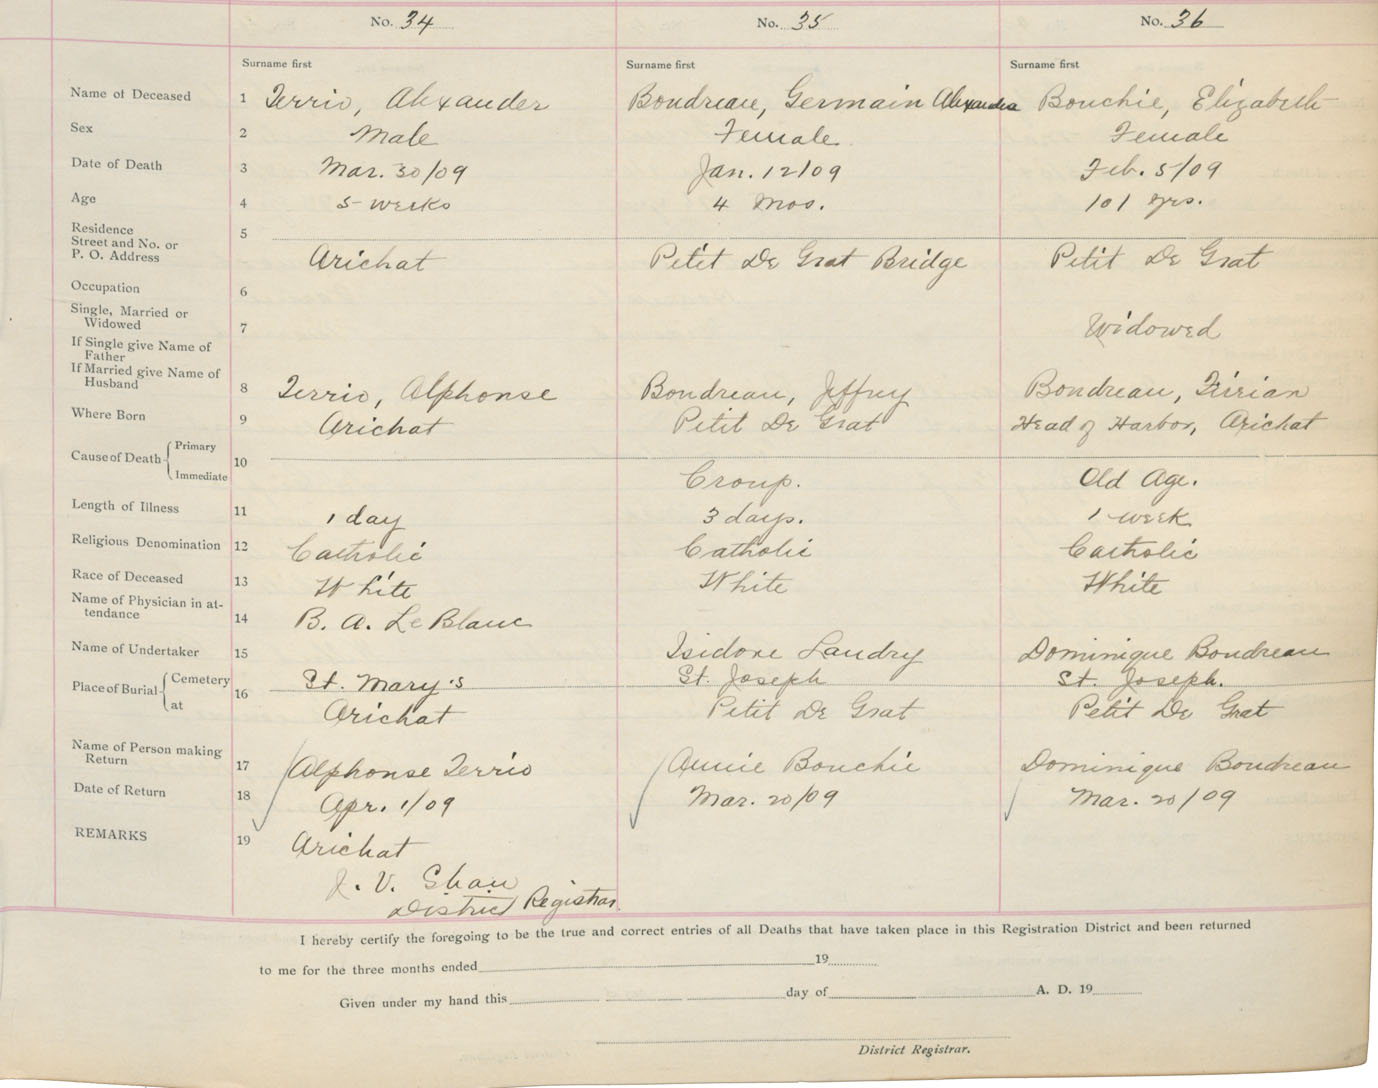 No. 34 No. 35 No. 36
Surname first Surname first Surname first
Name of Deceased 1 Terrio, Alexander Boudreau, Germain Alexandra Bouchie, Elizabeth
Sex 2 Male Female Female
Date of Death 3 Mar. 30/09 Jan. 12/09 Feb. 5/09
Age 4 5 weeks 4 Mos. 101 yrs.
Residence 5
Street and No. or
P. O. Address Arichat Petit De Grat Bridge Petit De Grat
Occupation 6
Single, Married or
Widowed 7 Widowed
If Single give Name of
Father
If Married give Name of
Husband 8 Terrio, Alphonse Boudreau, Jeffrey Boudreau,
Where Born 9 Arichat Petit De Grat Head of Harbor, Arichat
Cause of Death Primary
Immediate 10 Croup. Old Age.
Length of Illness 11 1 day 3 days. 1 week
Religious Denomination 12 Catholic Catholic Catholic
Race of Deceased 13 White White White
Name of Physician in at-
tendance 14 B. A. LeBlanc
Name of Undertaker 15 Isidore Landry Dominique Boudreau
Place of Burial Cemetery 16 St. Mary's St. Joseph St. Joseph.
at Arichat Petit De Grat Petit De Grat
Name of Person making
Return 17 Alphonse Terrio Annie Bouchie Dominique Boudreau
Date of Return 18 Apr. 1/09 Mar. 20/09 Mar. 20/09
REMARKS 19 Arichat
J. V. Shaw
District Registrar.
I hereby certify the foregoing to be the true and correct entries of all Deaths that have taken place in this Registration District and been returned
to me for the three months ended 19
Given under my hand this day of A. D. 19
District Registrar.